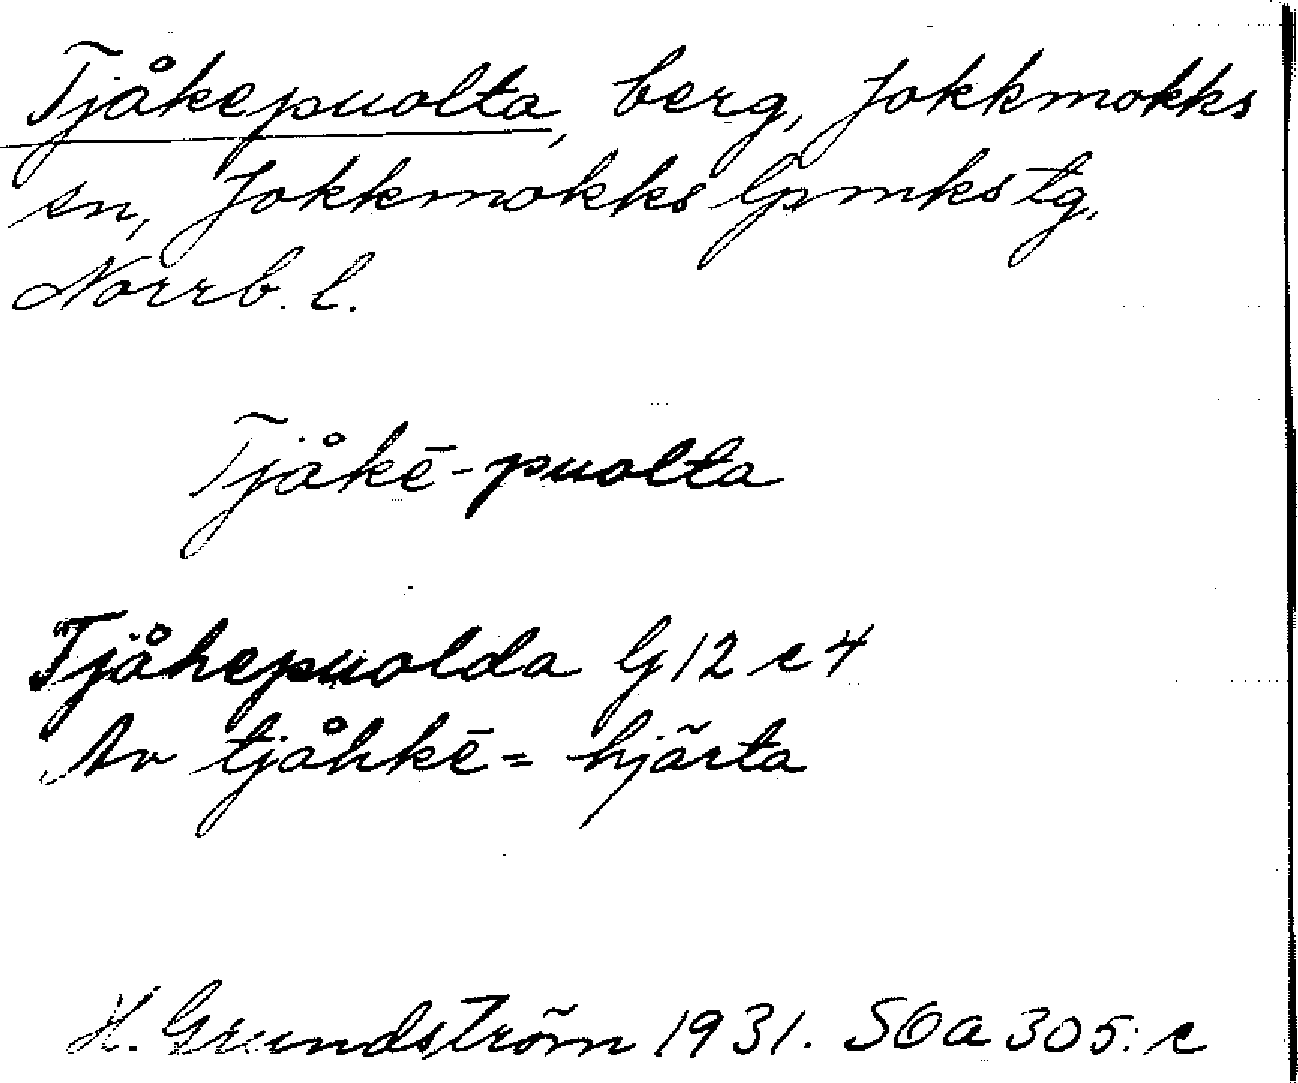 Tjåkepuolta, berg, Jokkmokks
sn, Jokkmokks lpmks tg,
Norrb. l.
Tjåkē-puolta
Tjåhepuolda G12 c 4
Av tjåhkē = hjärta
H. Grundström 1931. SOa 305: c